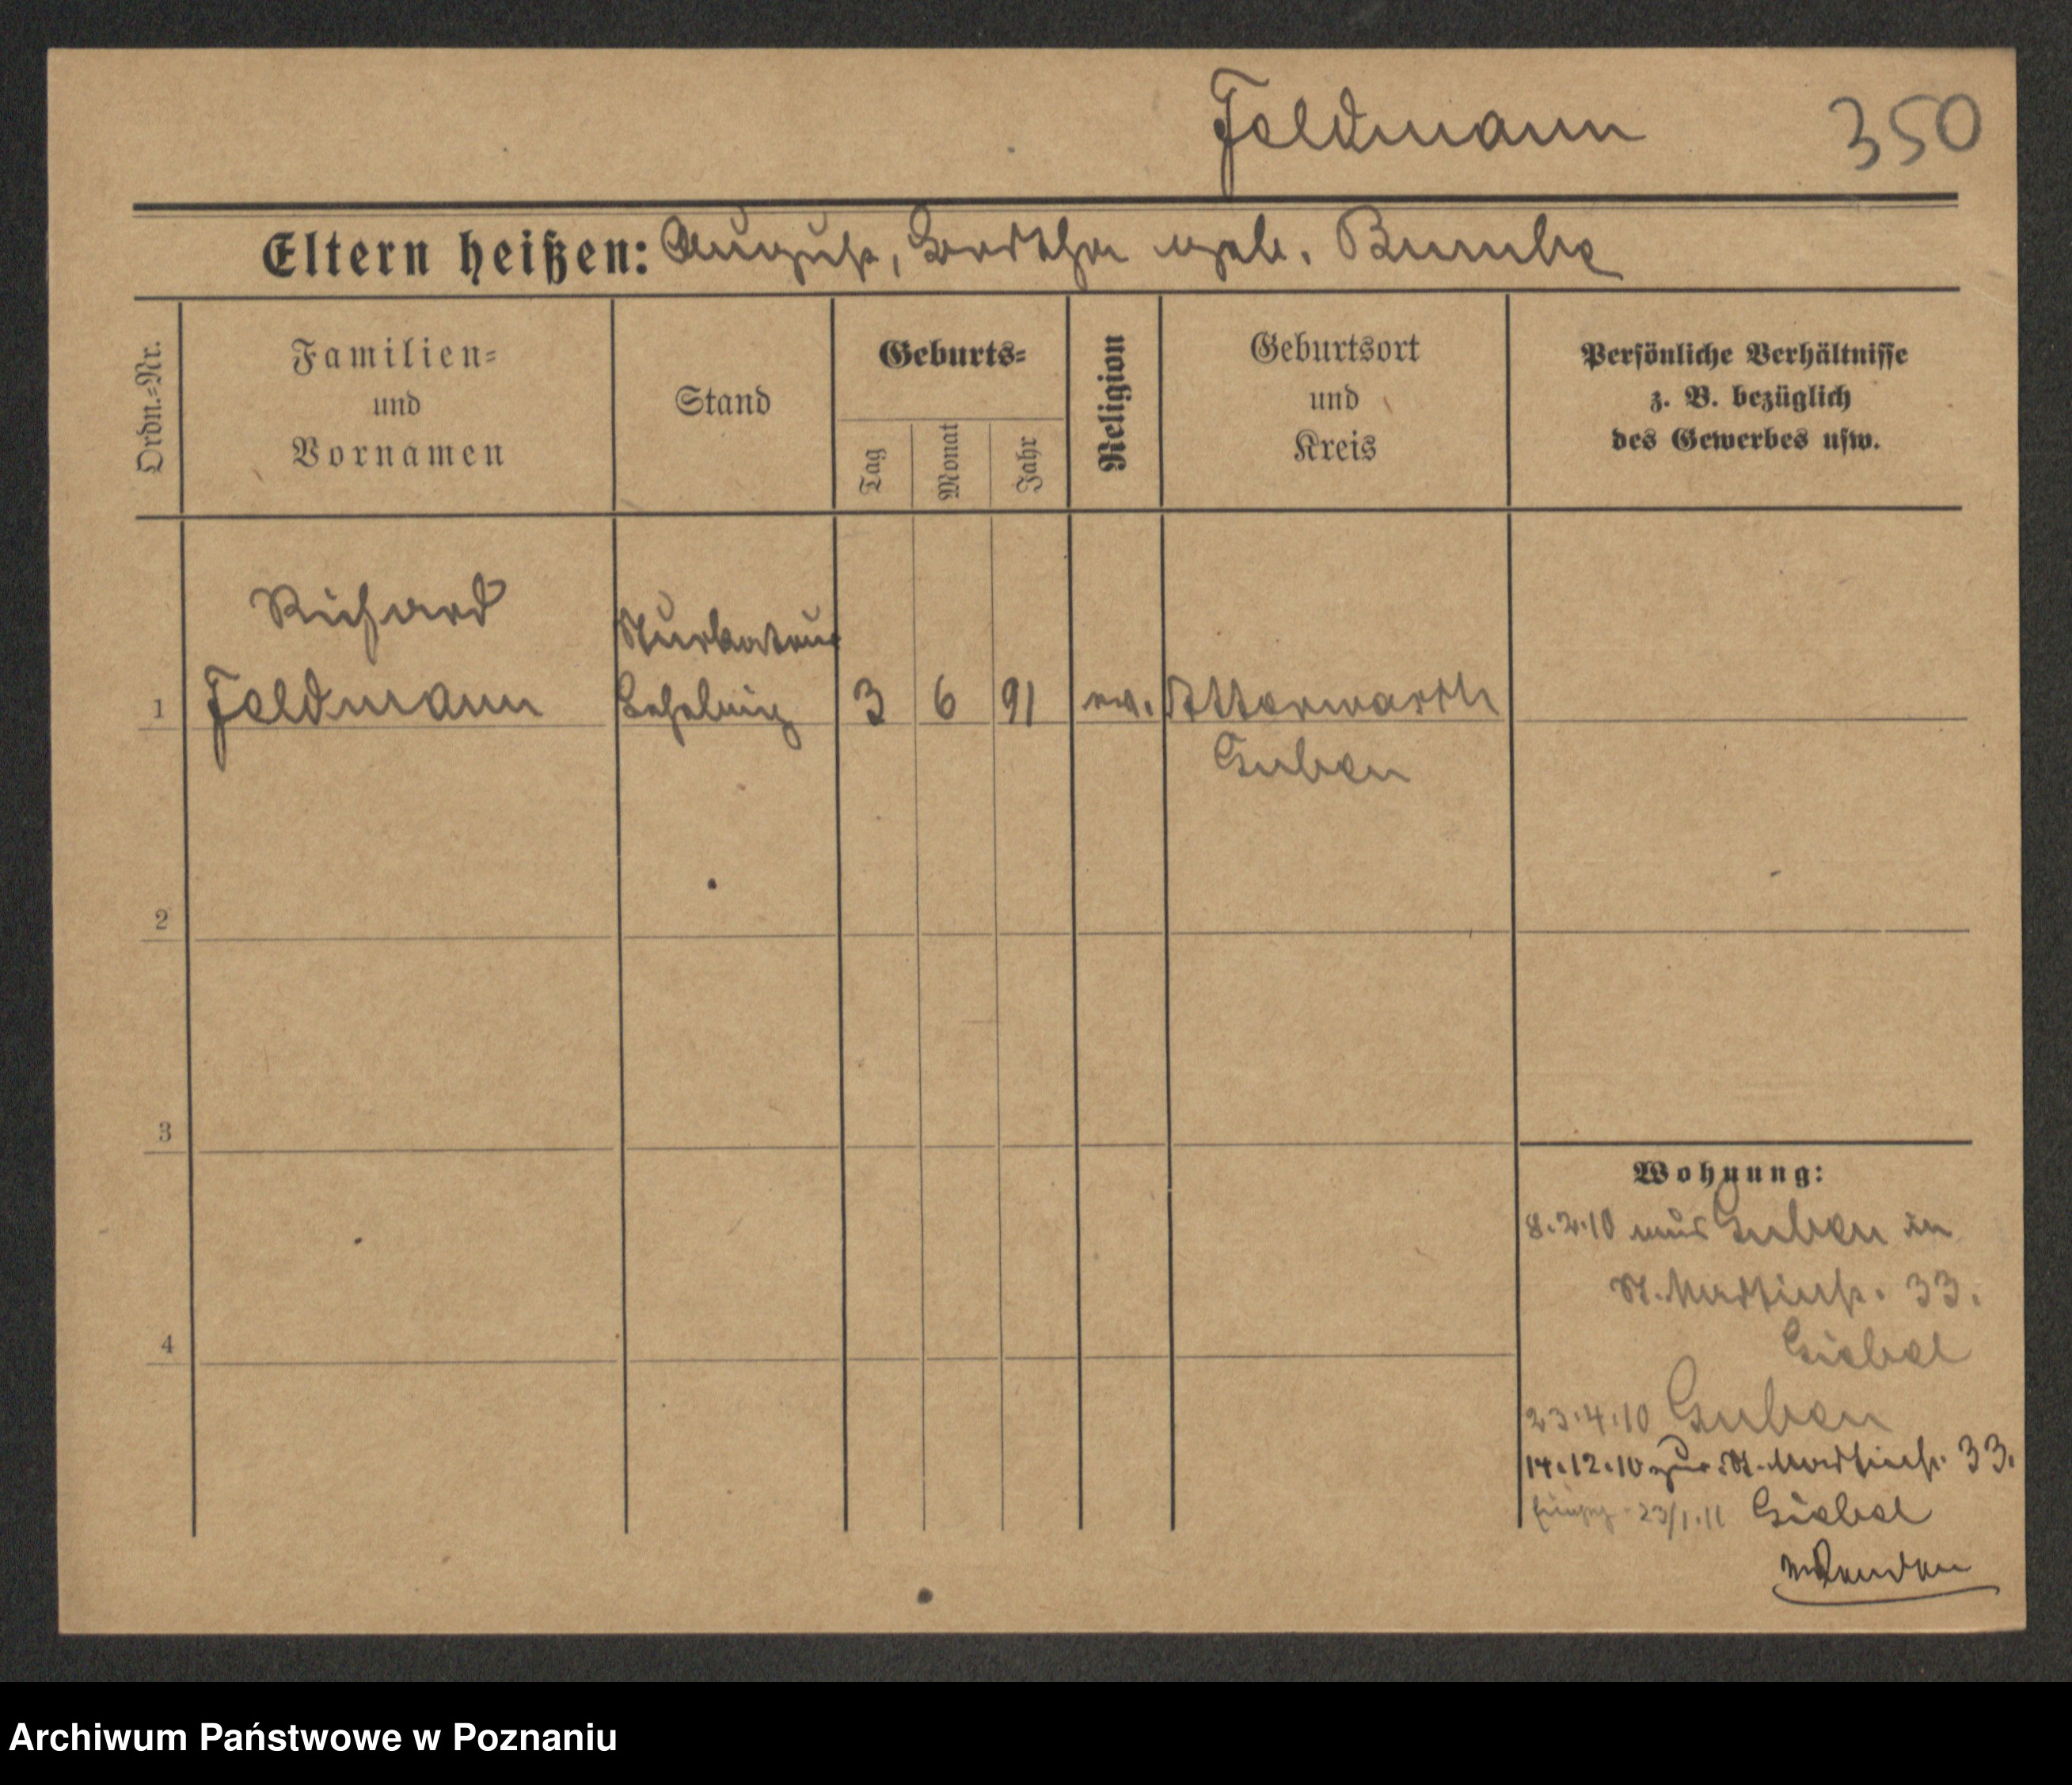 Feldmann 350
Eltern heißen: August, Bertha geb. Bumke
Ordn.-Nr.
Familien-
und
Vornamen
Stand
Geburts-
Tag
Monat
Jahr
Religion
Geburtsort
und
Kreis
Persönliche Verhältnisse
z. B. bezüglich
des Gewerbes usw.
Richard
Stuckateur
1 Feldmann Lehrling 3 6 91 ev. Atterwasch
Guben
2
3
4
Wohnung:
8.2.10 aus Guben in
St. Martinstr. 33.
Giebel
23.4.10 Guben
14.12.10 zur. St. Martinstr. 33.
23/1.11 Giebel
Archiwum Państwowe w Poznaniu